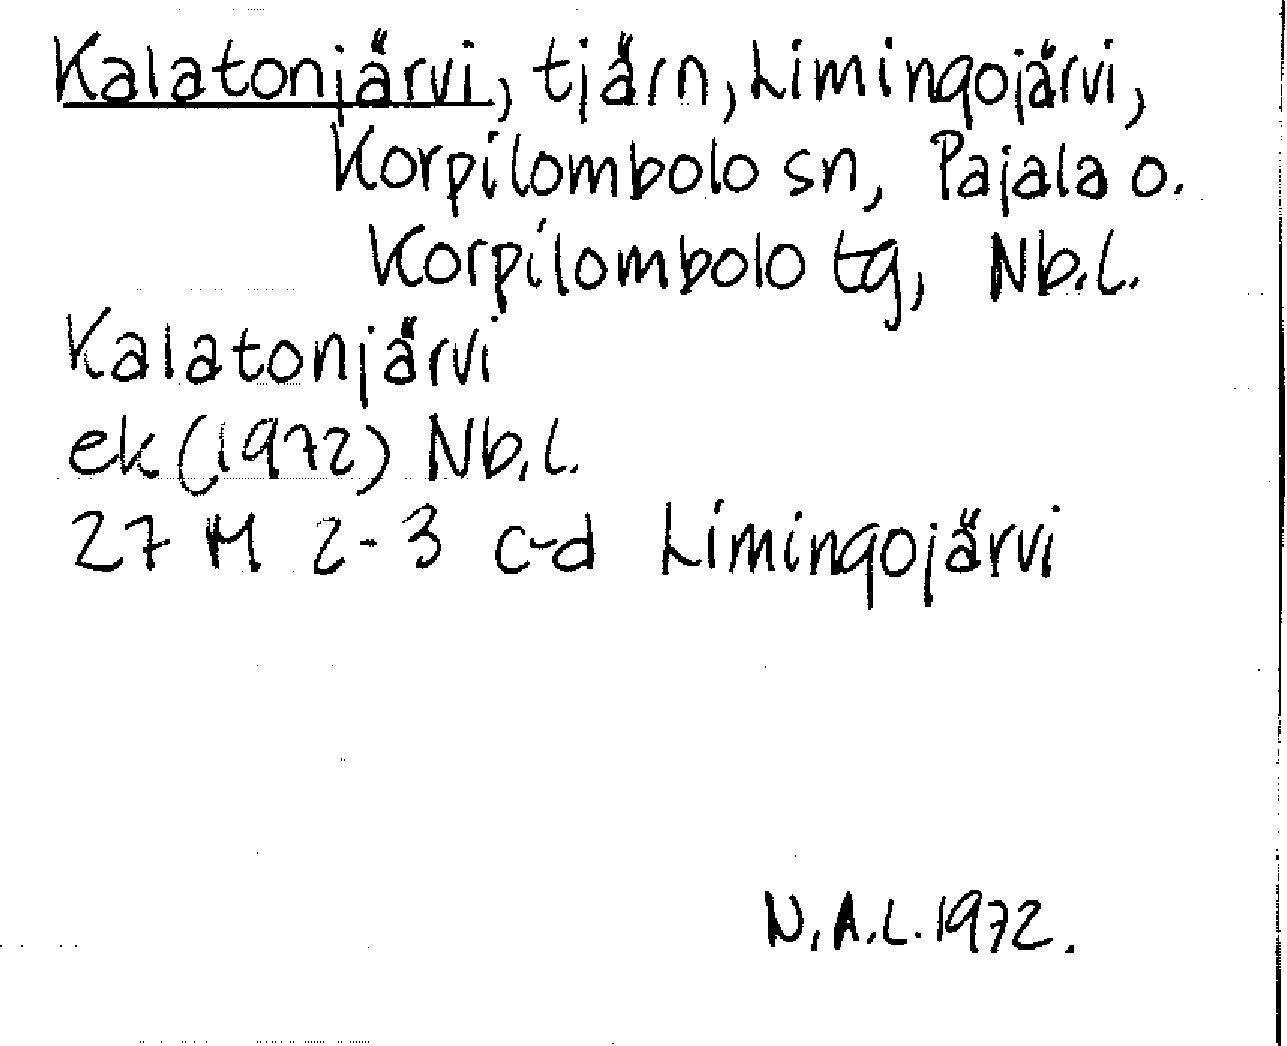 Kalatonjärvi, tjärn, Limingojärvi,
Korpilombolo sn, Pajala o.
Korpilombolo tg, Nb.l.
Kalatonjärvi
ek (1972) Nb.l.
27 M 2-3 c-d Limingojärvi
N.A.L. 1972.